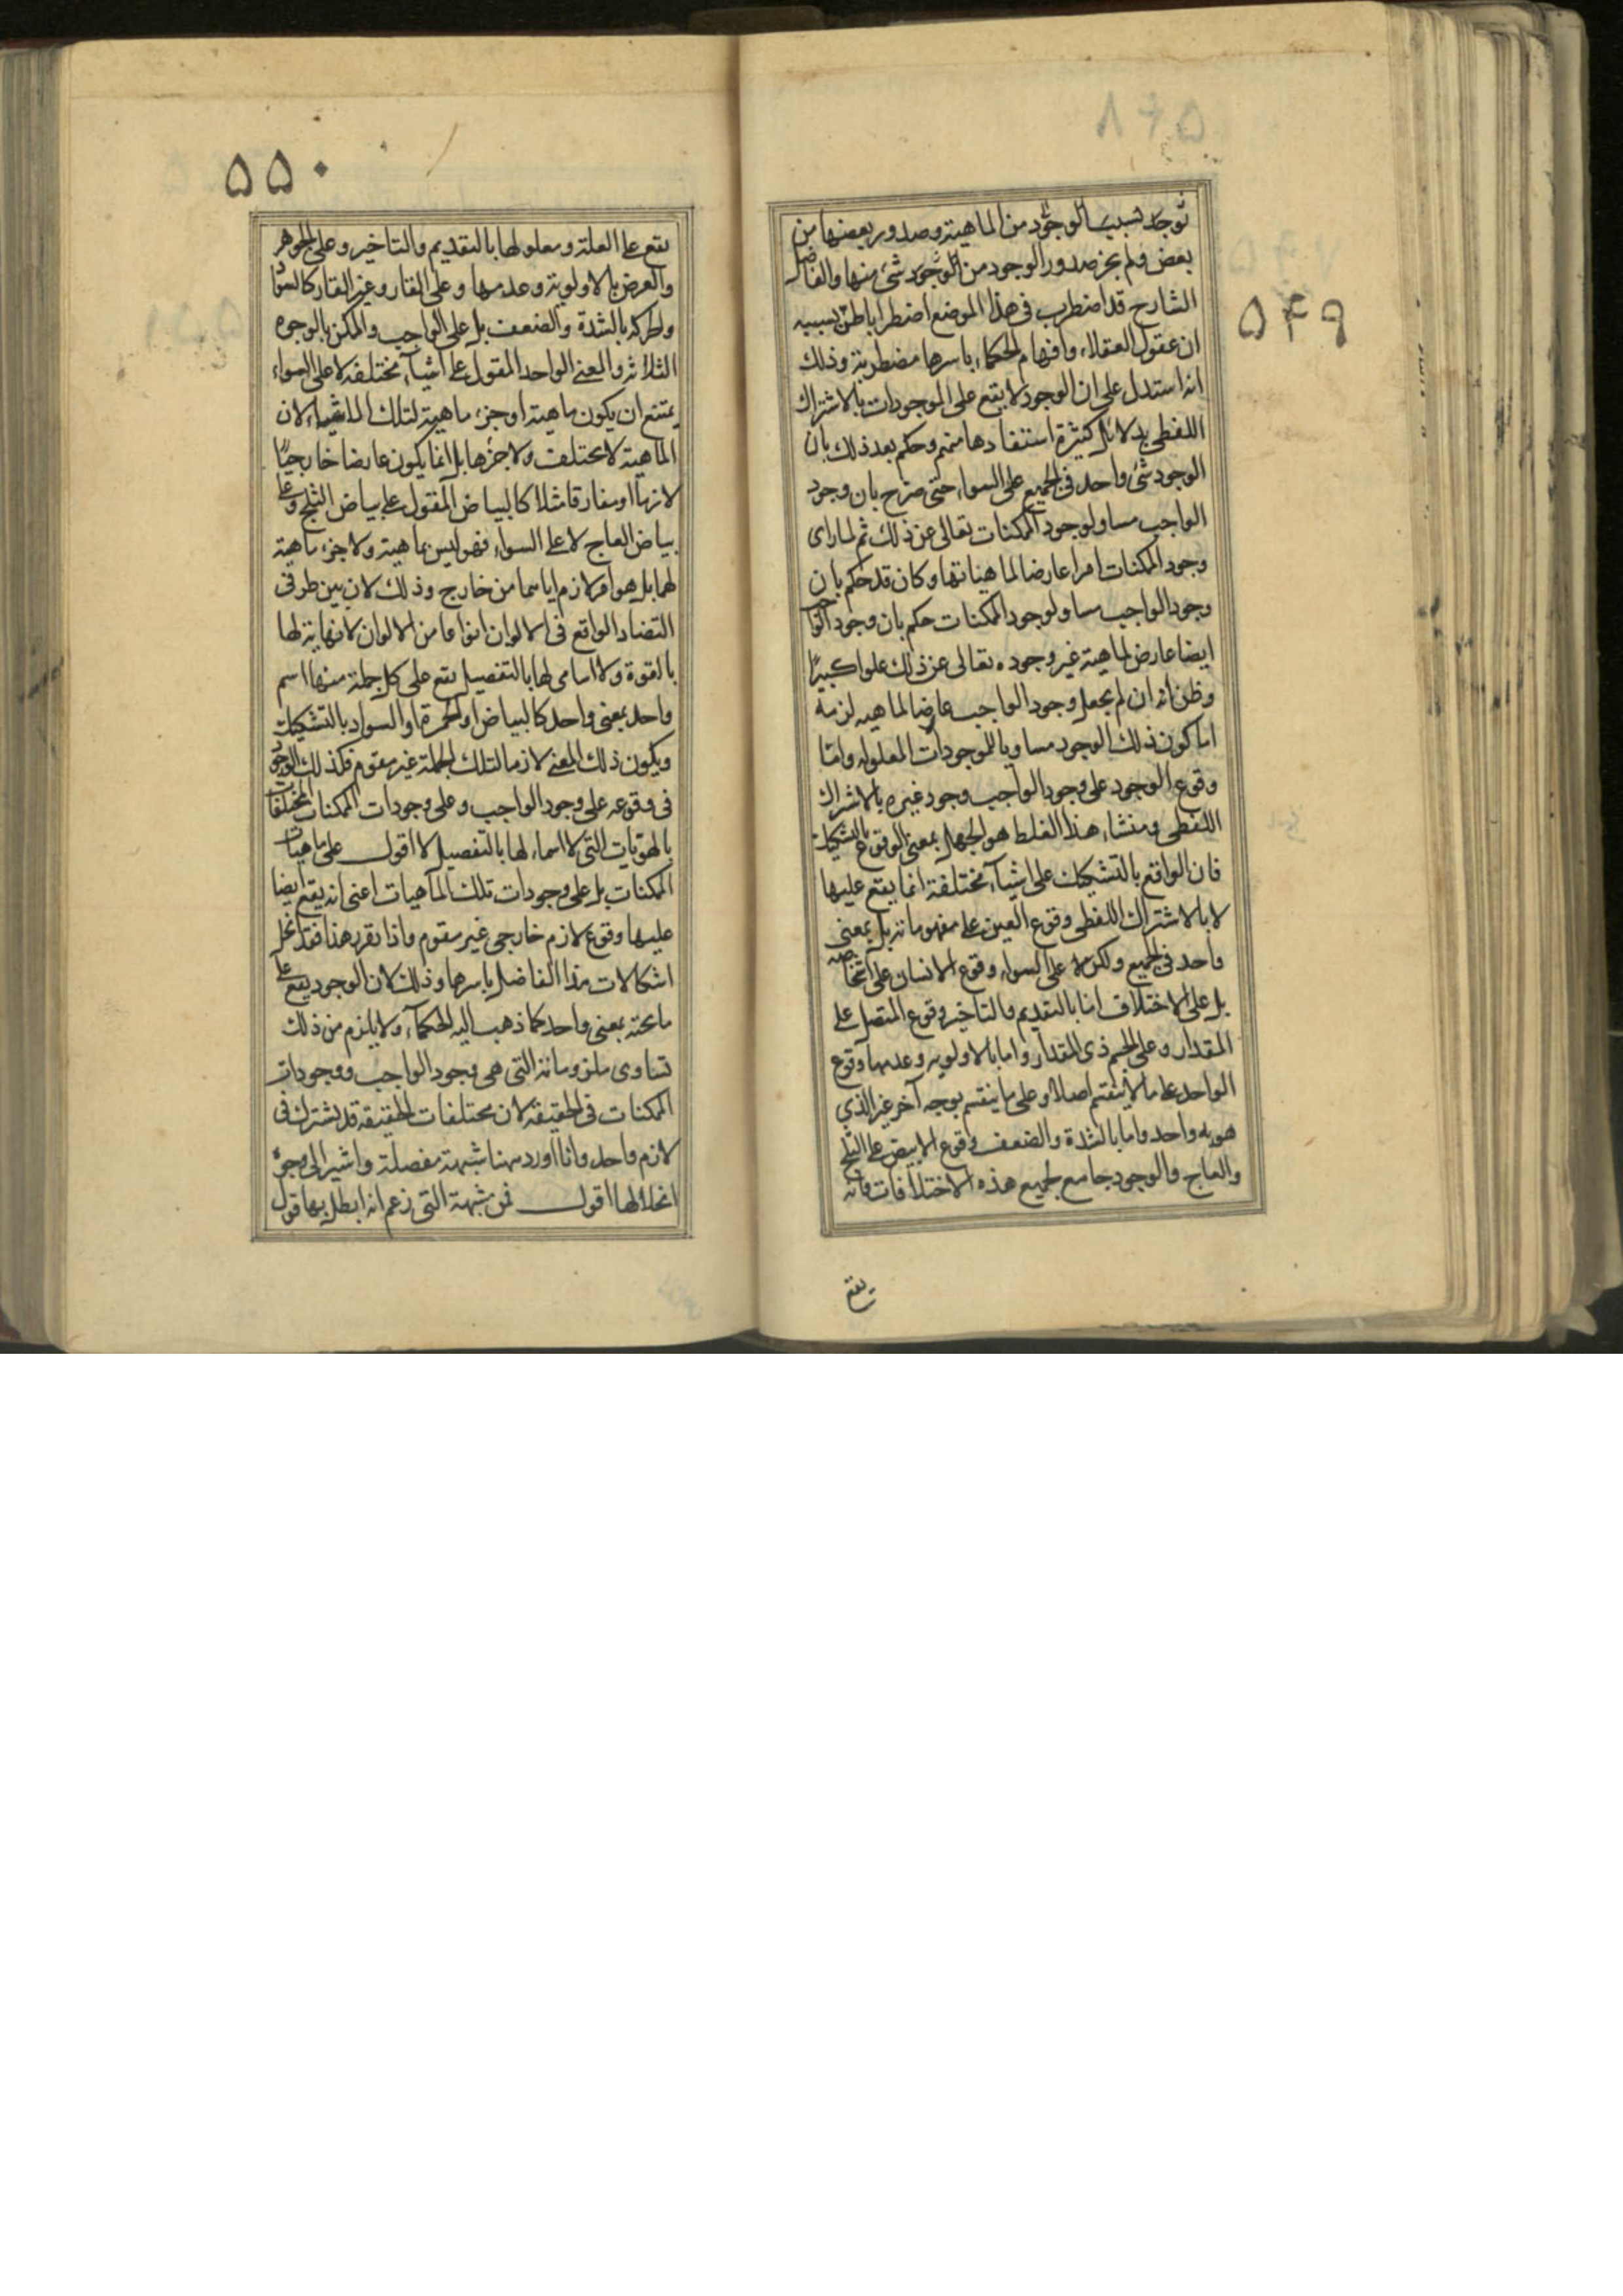 ۵۴۹
توجد بسبب الوجود من الماهية وصدور بعضها من
بعض ولم يجز صدور الوجود من الوجود شئ منها والفاضل
الشارح قد اضطرب فى هذا الموضع اضطرابا ظن بسببه
ان عقول العقلاء وافهام الحكماء باسرها مضطربة وذلك
انه استدل على ان الوجود لا يقع على الموجودات بالاشتراك
اللفظى بدلائل كثيرة استفادها منهم وحكم بعد ذلك بان
الوجود شئ واحد فى الجميع على السواء حتى صرح بان وجود
الواجب مساو لوجود الممكنات تعالى عن ذلك ثم لما راى
وجود الممكنات امرا عارضا لماهياتها وكان قد حكم بان
وجود الواجب مساو لوجود الممكنات حكم بان وجود الواجب
ايضا عارض لماهية غير وجوده تعالى عن ذلك علوا كبيرا
وظن انه ان لم يجعل وجود الواجب عارضا لماهيه لزمه
اما كون ذلك الوجود مساويا للموجودات المعلوله واما
وقوع الوجود على وجود الواجب وجود غيره بالاشتراك
اللفظى ومنشاء هذا الغلط هو الجهل بمعنى الوقوع بالتشكيك
فان الواقع بالتشكيك على اشيآء مختلفة انما يقع عليها
لا بالاشتراك اللفظى وقوع العين على مفهوماته بل بمعنى
واحد فى الجميع ولكن لا على السواء وقوع الانسان على اشخاصه
بل على الاختلاف اما بالتقديم والتاخير وقوع المتصل على
المقدار وعلى الجسم ذى المقدار واما بالاولويه وعدمها وقوع
الواحد على ما لا ينقسم اصلا وعلى ما ينقسم بوجه آخر غير الذي
هو به واحد واما بالشدة والضعف وقوع الابيض على الثلج
والعاج والوجود جامع لجميع هذه الاختلافات فانه
يقع
۵۵۰
يقع على العلة ومعلولها بالتقديم والتاخير وعلى الجوهر
والعرض بالاولوية وعدمها وعلى القار وغير القار كالسواد
والحركه بالشدة والضعف بل على الواجب والممكن بالوجوه
الثلاثه والمعنى الواحد المقول على اشيآء مختلفه لا على السواء
يمتنع ان يكون ماهية او جزء ماهية لتلك الاشياء لان
الماهية لا تختلف ولا جزءها بل انما يكون عارضا خارجيا
لازما او مفارقا مثلا كالبياض المقول على بياض الثلج وعلى
بياض العاج لا على السواء فهو ليس بماهية ولا جزء ماهية
لهما بل هو امر لازم اياهما من خارج وذلك لان بين طرفى
التضاد الواقع فى الالوان انواعا من الالوان لا نهاية لها
بالقوة ولا اسامى لها بالتفصيل يقع على كل جملة منها اسم
واحد بمعنى واحد كالبياض او الحمرة او السواد بالتشكيك
ويكون ذلك المعنى لازما لتلك الجملة غير مقوم فكذلك الوجود
فى وقوعه على وجود الواجب وعلى وجودات الممكنات المختلفات
بالهويات التى لا اسماء لها بالتفصيل لا اقول على ماهيات
الممكنات بل على وجودات تلك الماهيات اعنى انه يقع ايضا
عليها وقوع لازم خارجى غير مقوم واذا تقرر هذا فقد انحل
اشكالات هذا الفاضل باسرها وذلك لان الوجود يقع على
ما تحته بمعنى واحد كما ذهب اليه الحكمآء ولا يلزم من ذلك
تساوى ملزوماته التى هى وجود الواجب ووجودات
الممكنات فى الحقيقه لان مختلفات الحقيقة قد يشترك فى
لازم واحد وانا اورد ههنا شبهته مفصلة واشير الى وجوه
انحلالها اقول فمن شبهته التى زعم انه ابطل بها قول